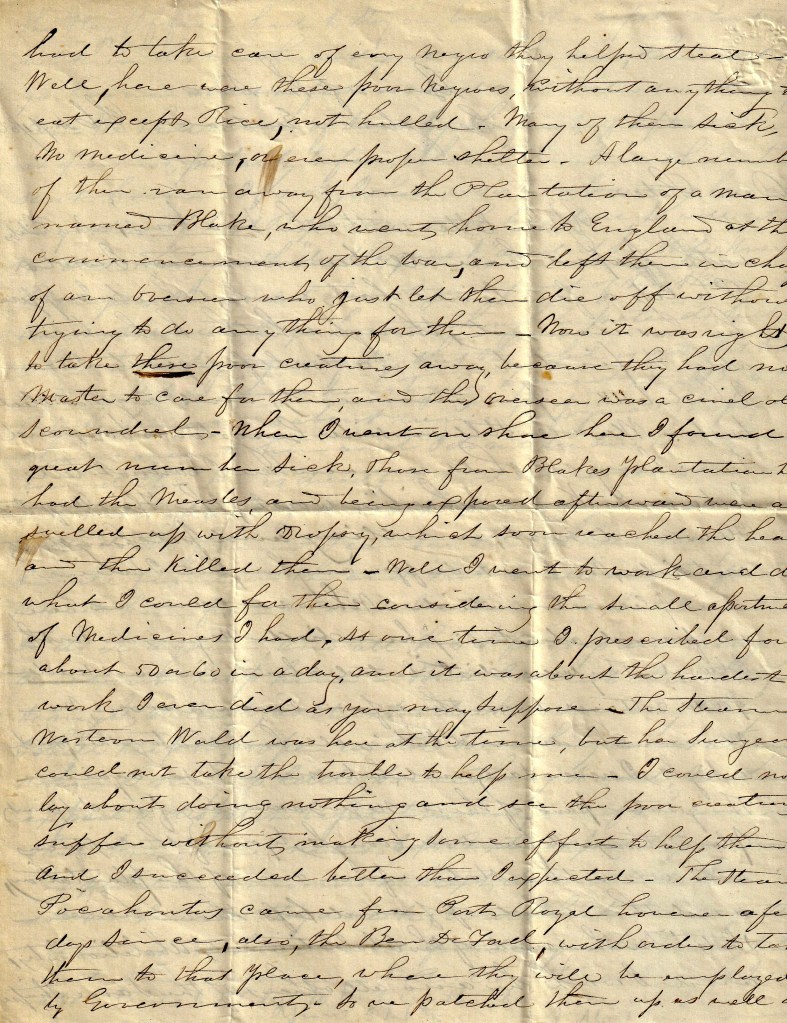 had to take care of evry negro they helped steal -
Well, here were these poor negroes, without anything t
eat except Rice, not hulled - Many of them sick,
No medicine, or even proper shelter - A large numb
of them ran away from the Plantation of a man
named Blake, who went home to England at th
commencement of the war, and left them in cha
of an Overseer who just let them die off withou
trying to do anything for them - Now it was right
to take these poor creatures away, because they had no
Master to care for them, and this overseer was a cruel ol
Scoundrel - When I went on shore here I found
great number sick, those from Blakes Plantation
had the Measles, and being exposed afterward were a
swelled up with Dropsy, which soon reached the hea
and then Killed them - Well I went to work and d
what I could for them considering the small
of Medicines I had, At one time I prescribed for
about 50 or 60 in a day, and it was about the hardest
work I ever did as you may suppose - The Steam
Western World was here at the time, but her Surgeon
could not take the trouble to help me - I could no
lay about doing nothing and see the poor creatur
suffer without making some effort to help them
And I succeeded better than I expected - The Steam
Pocahontas came from Port Royal however a few
days since, also, the Ben DeFord, with orders to ta
them to that place, where they will be employed
by Government - So we patched them up as well a